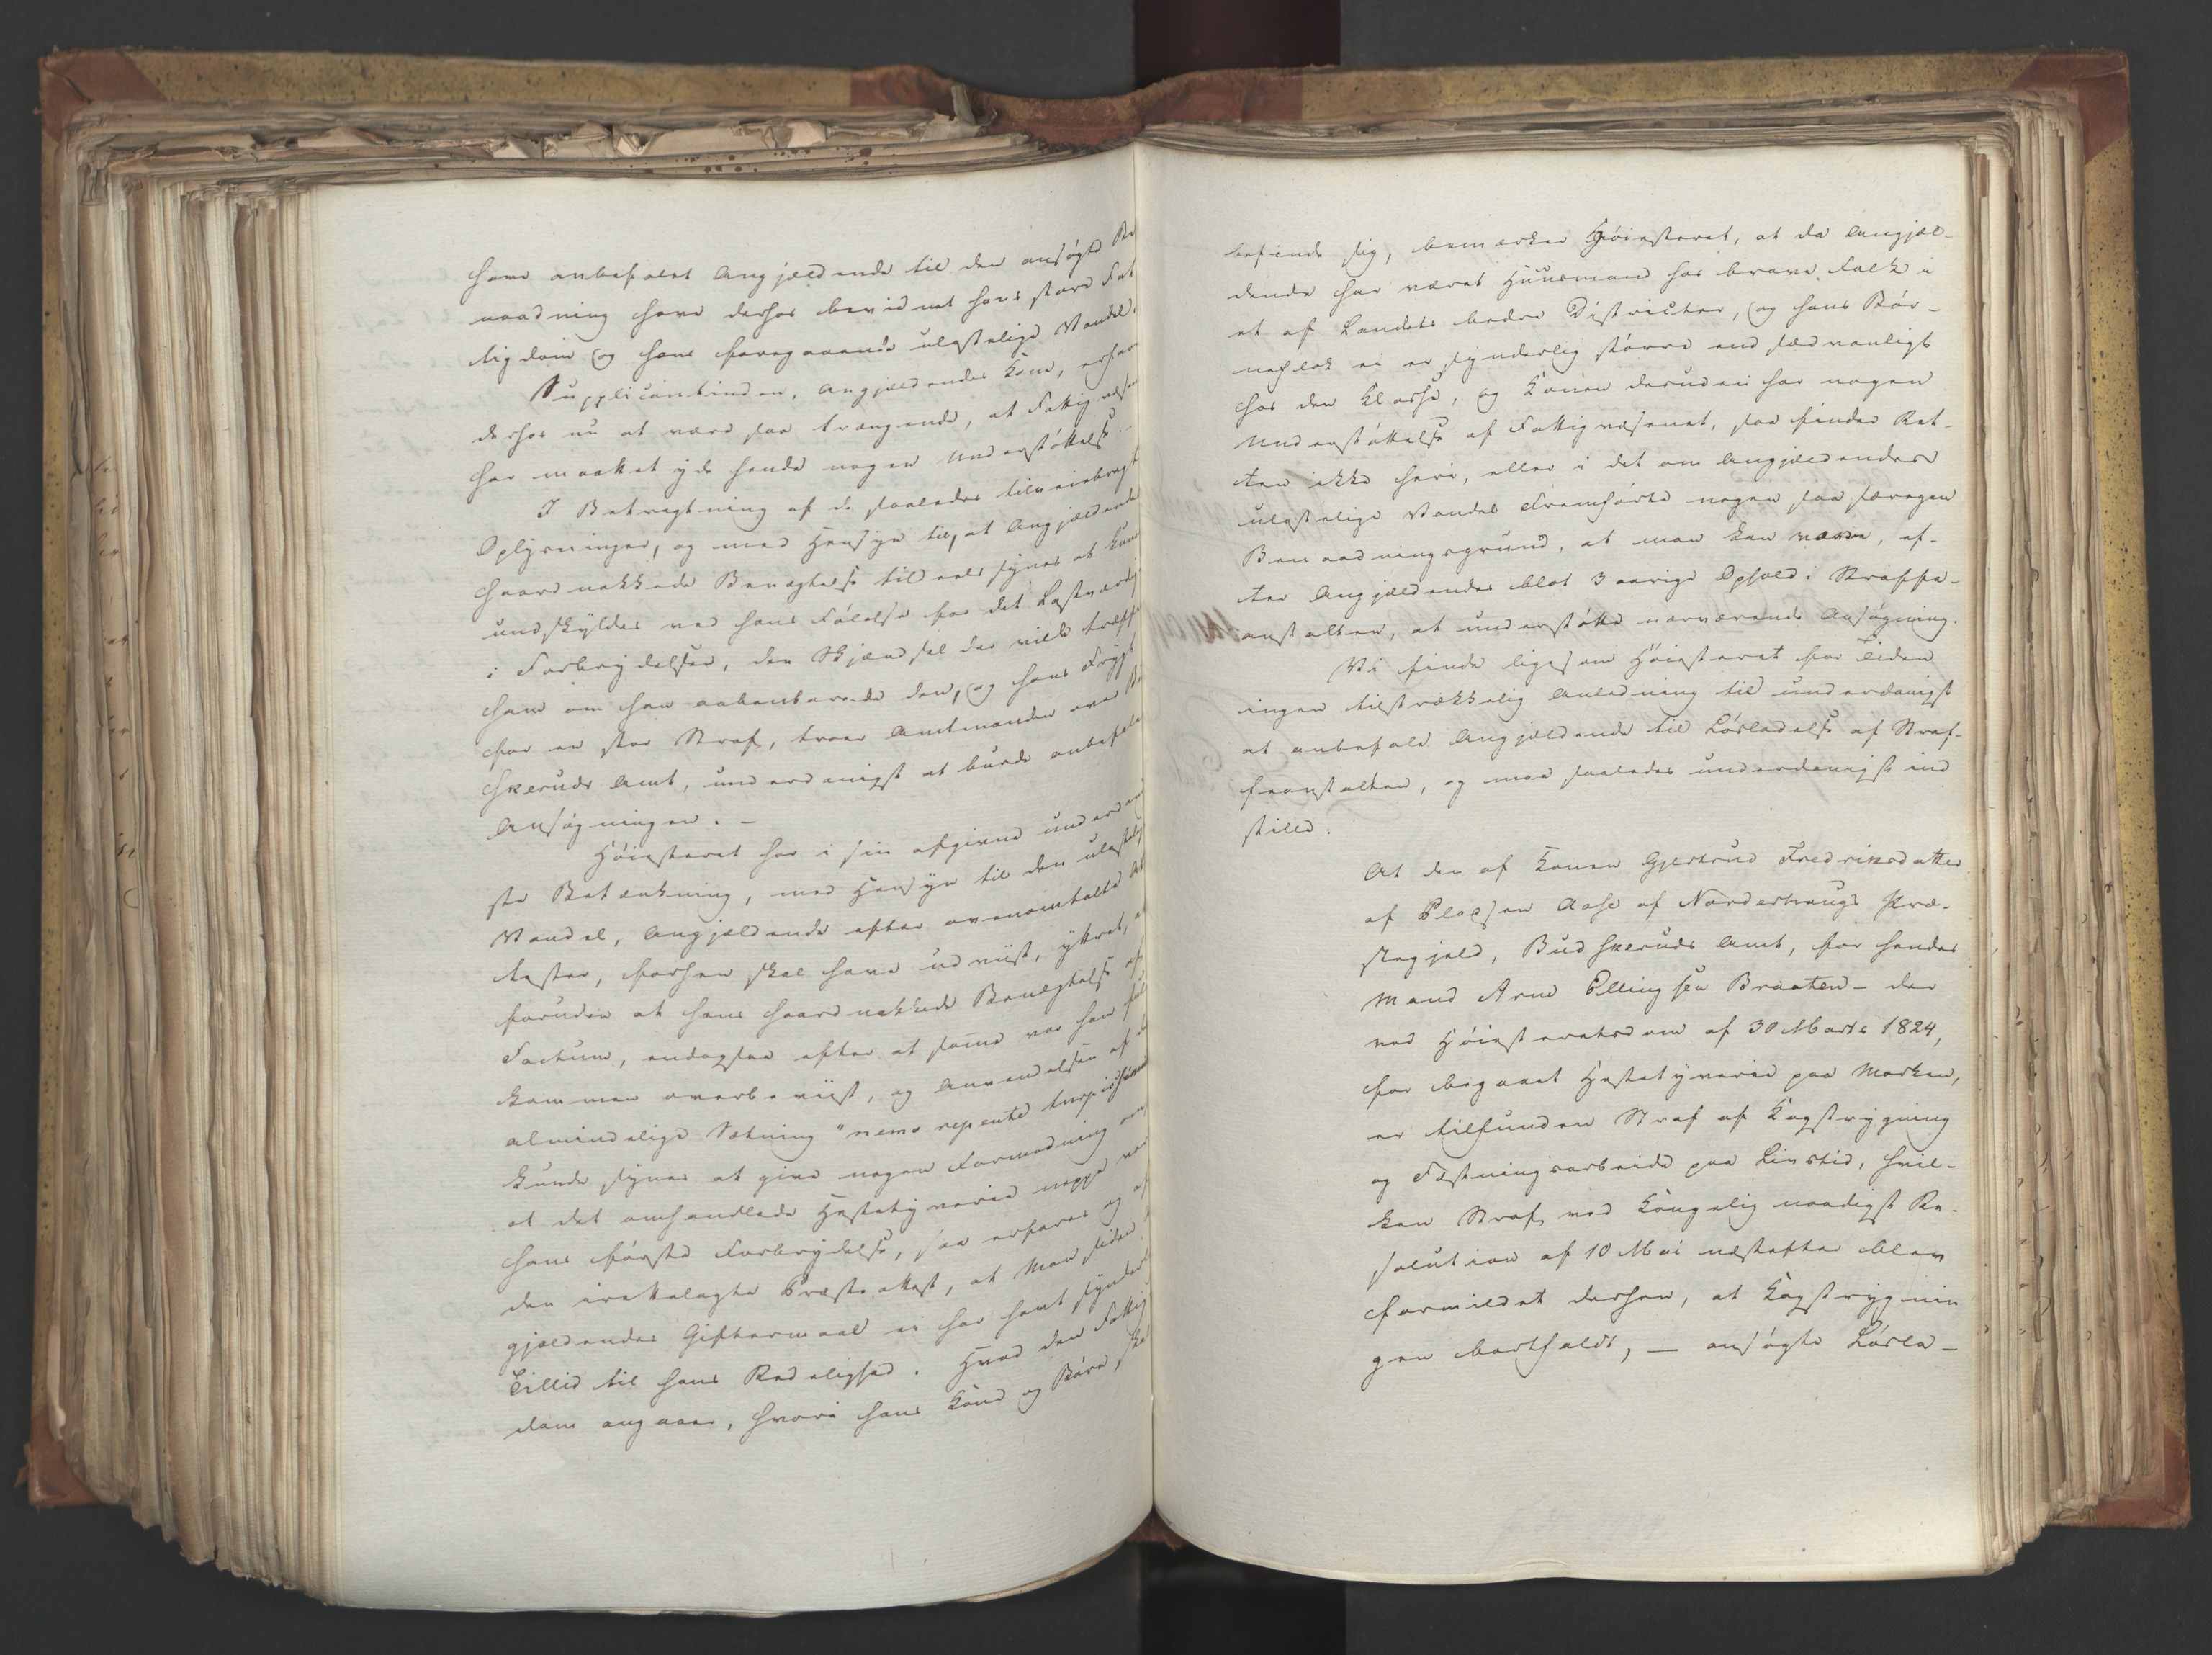 have anbefalet Angjældende til den ansøgte Be
naadning have derhos bevidnet hans store Fat
tigdom og hans foregaaende ulastelige Vandel.
Supplicantinden, Angjældendes Kone, erfares
derhos nu at være saa trængende, at Fattigvæsen
har maattet yde hende nogen Understøttelse.
I Betragtning af de saaledes tilveiebragte
Oplysninger, og med Hensyn til, at Angjældendes
haardnakkede Benægtelse tildeels synes at kunne
undskyldes ved hans Følelse for det Lastværdige
i Forbrydelsen, den Skjændsel der vilde træffe
ham om han aabenbarede den, og hans Frygt
for en stor Straf, troer Amtmanden over Bu
skeruds Amt, underdanigst at burde anbefale
Ansøgningen. –
Høiesteret har i sin afgivne underdanig
ste Betænkning, med Hensyn til den ulastelige
Vandel, Angjældende efter ovenomtalte At
tester, forhen skal have udviist, yttret, at
foruden at hans haardnakkede Benægtelse af
Factum, endogsaa efter at samme var han fuld
kommen overbeviist, og Anvendelsen af den
almindelige Sætning "nemo repente turpissimus
kunde synes at give nogen Formodning om
at det omhandlede Hestetyverie neppe var
hans første Forbrydelse, saa erfares og af
den irettelagte Præsteattest, at Man siden An
gjældendes Giftermaal ei har havt synderlig
Tillid til hans Redelighed. Hvad den Fattig
dom angaaer, hvori hans Kone og Børn skal
befinde sig, bemærker Høiesteret, at da Angjæl-
dende har været Huusmand hos brave Folk i
et af Landets bedre Districter, og hans Bør-
neflok ei er synderlig større end sædvanligt
hos den Klasse, og Konen desuden har nogen
Understøttelse af Fattigvæsenet, saa finder Ret-
ten ikke heri, eller i det om Angjældendes
ulastelige Vandel Fremførte nogen saa særegen
Benaadningsgrund, at man kan være, ef-
ter Angjældendes blot 3 aarige Ophold i Straffe-
anstalten, at understøtte nærværende Ansøgning.
Vi finde ligesom Høiesteret for Tiden
ingen tilstrækkelig Anledning til underdanigst
at anbefale Angjældende til Løsladelse af Straf-
feanstalten, og maa saaledes underdanigst ind
stille:
At den af Konen Gjertrud Fredriksdatter
af Pladsen Aase af Norderhougs Præ-
stegjeld, Budskeruds Amt, for hendes
Mand Arne Ellingsen Braaten – der
ved Høiesteretsdom af 30 Marts 1824,
for begaaet Hestetyverie paa Marken,
er tilfunden Straf af Kagstrygning
og Fæstningsarbeide paa Livstid, hvil-
ken Straf ved Kongelig naadigst Re-
solution af 10 Mai næstefter blev
formildet derhen, at Kagstrygnin
gen bortfaldt, – ansøgte Løsla-